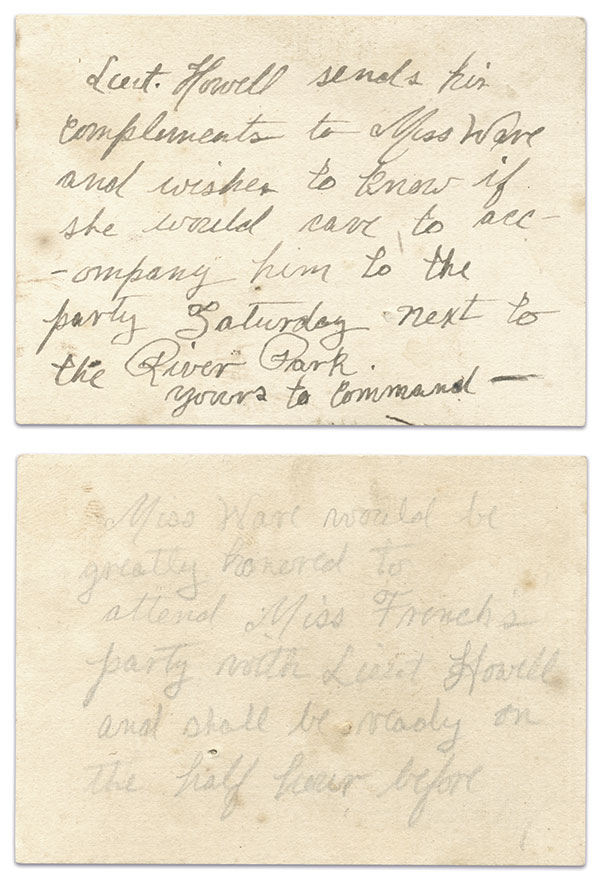 Lieut. Howell sends his
complements to Miss Ware
and wishes to know if
she would care to acc-
-ompany him to the
party Saturday next to
the River Park.
yours to command —
Miss Ware would be
greatly honored to
attend Miss French's
party with Lieut Howell
and shall be ready on
the half hour before